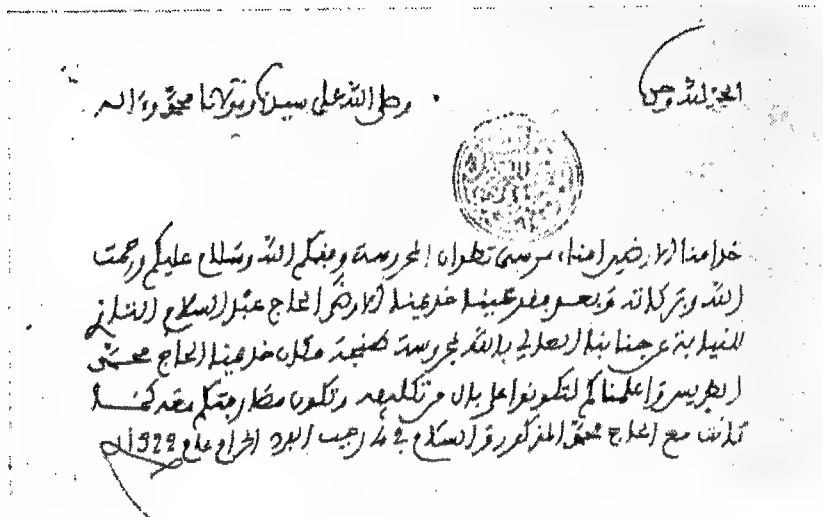 الحمد لله وحده
وصلى الله على سيدنا ومولانا محمد وءاله
خدامنا الارضين امناء مرسى تطوان المحروسة وفقكم الله وسلام عليكم ورحمت
الله وبركاته وبعد فقد عينا خديمنا الارضى الحاج عبد السلام التازي
للنيابة عن جنابنا العالي بالله بمحروسة طنجة مكان خديمنا الحاج محمد
الطريس واعلمناكم لتكونوا على بال من تكليفه وتكون مخابرتكم معه كما
كانت مع الحاج محمد المذكور والسلام في 4 رجب الفرد الحرام عام 1329